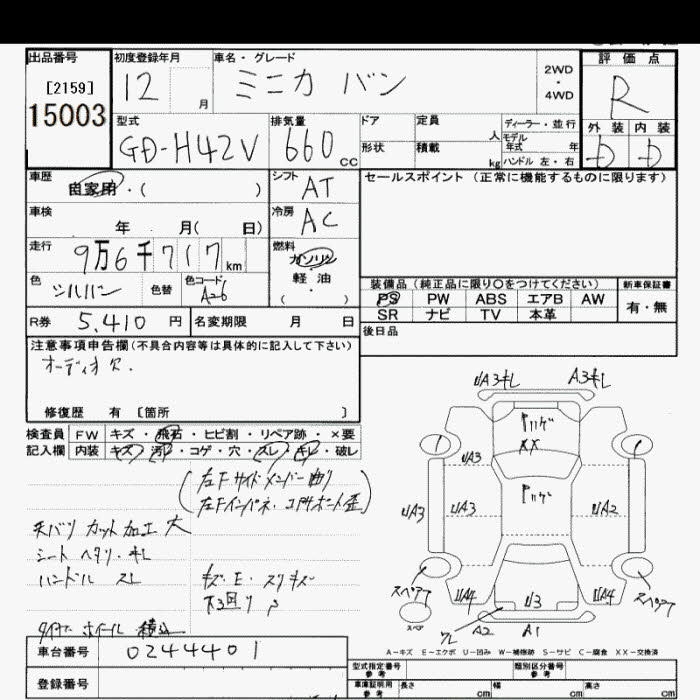 出品番号 初度登録年月 車名・グレード 評価点
[2159] 12 月 ミニカ バン 2WD・4WD R
15003
型式 排気量 ドア 定員 人 ディーラー・並行 外装 内装
GD-H42V 660 cc 形状 積載 kg モデル年式 年 ハンドル 左・右 D D
車歴 自家用・( ) シフト AT セールスポイント(正常に機能するものに限ります)
車検 年 月( 日) 冷房 AC
走行 9万6千717km 燃料 ガソリン
軽油
( ・ )
色 シルバー 色替 色コード A26 装備品(純正品に限り〇をつけてください) 新車保証書
PS PW ABS エアB AW 有・無
R券 5,410 円 名変期限 月 日 SR ナビ TV 本革
後日品
注意事項申告欄(不具合内容等は具体的に記入して下さい)
オーディオ欠.
修復歴 有 [箇所 ]
検査員 FW キズ・飛石・ヒビ割・リペア跡・×要
記入欄 内装 キズ・汚レ・コゲ・穴・スレ・キレ・破レ
UA3キレ A3キレ
(左Fサイドメンバー曲り
左Fインパネ・コアサポート歪)
UA3 XX
UA3 UA3 UA2
天バリ カット加工 大
シート ヘタリ・キレ
ハンドル スレ キズ・E・スリキズ
下回り サ
スペアT UA4 U3 UA4 スペアT
スペア ワレ A2 A1
タイヤ ホイール 積込
A−キズ E−エクボ U−凹み W−補修跡 S−サビ C−腐食 XX−交換済
車台番号 0244401
型式指定番号 参考 類別区分番号 参考
登録番号 車庫証明用 参考 長さ cm 幅 cm 高さ cm